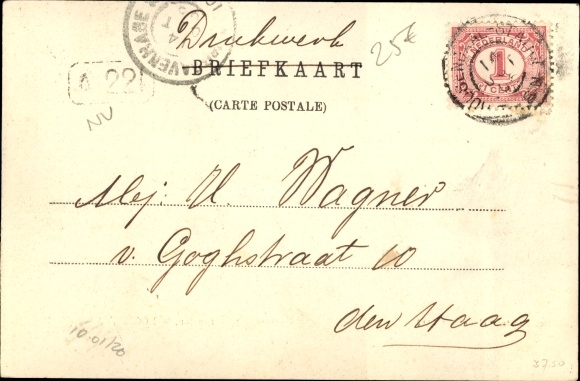 Drukwerk
25€
BRIEFKAART
(CARTE POSTALE)
NEDERLAND
1
CENT
22
NV
Mej: H. Wagner
v. Goghstraat 10
den Haag
10.01/20
37.50